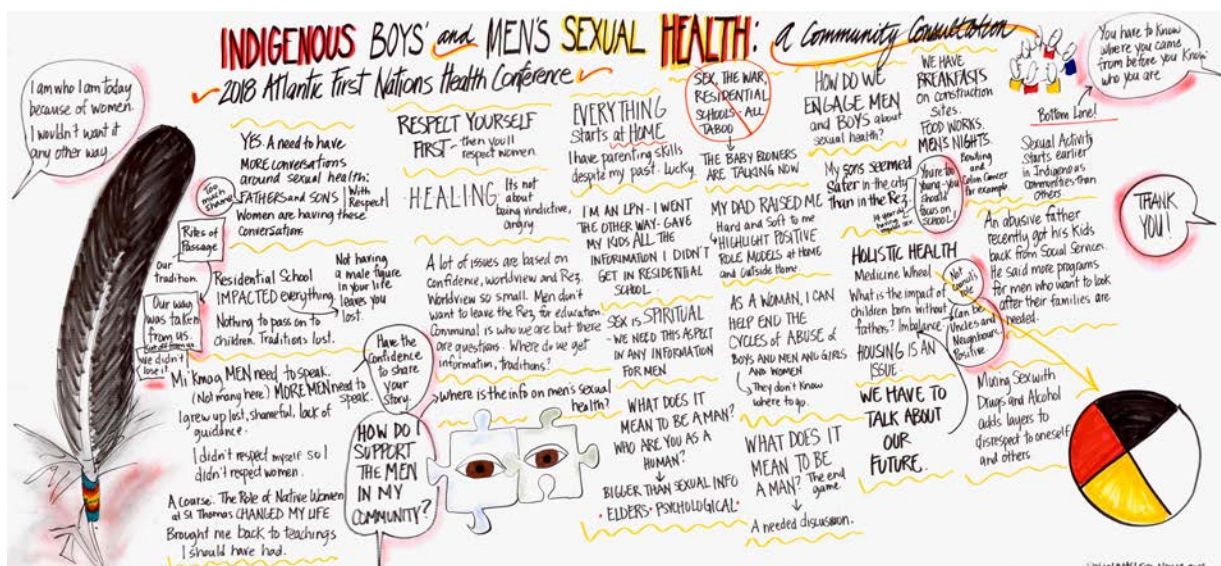 INDIGENOUS BOYS' and MEN'S SEXUAL HEALTH: a Community Consultation
2018 Atlantic First Nations Health Conference
I am who I am today
because of women.
I wouldn't want it
any other way.
YES. A need to have
MORE conversations
around sexual health:
FATHERS and SONS
With
Respect
Women are having these
conversations
Too
much
shame
Rites of
Passage
Our
tradition
Our way
was taken
from us.
We didn't
lose it
Residential School
IMPACTED everything.
Nothing to pass on to
children. Traditions lost.
Not having
a male figure
in your life
leaves you
lost.
Mi'kmaq MEN need to speak.
(Not many here) MORE MEN need to
speak.
I grew up lost, shameful, lack of
guidance.
I didn't respect myself so I
didn't respect women.
A course: The Role of Native Women
at St Thomas CHANGED MY LIFE
Brought me back to teachings
I should have had.
Have the
Confidence
to share
your
Story.
HOW DO I
SUPPORT
THE MEN
IN MY
COMMUNITY?
RESPECT YOURSELF
FIRST - then you'll
respect women.
HEALING
Its not
about
being vindictive,
angry
A lot of issues are based on
confidence, worldview and Rez.
Worldview so small. Men don't
want to leave the Rez for education.
Communal is who we are but there
are questions. Where do we get
information, traditions?
Where is the info on men's sexual
health?
EVERYTHING
starts at HOME
I have parenting skills
despite my past. Lucky.
I'M AN LPN - I WENT
THE OTHER WAY - GAVE
MY KIDS ALL THE
INFORMATION I DIDN'T
GET IN RESIDENTIAL
SCHOOL.
SEX IS SPIRITUAL
- WE NEED THIS ASPECT
IN ANY INFORMATION
FOR MEN
WHAT DOES IT
MEAN TO BE A MAN?
WHO ARE YOU AS A
HUMAN?
BIGGER THAN SEXUAL INFO
• ELDERS • PSYCHOLOGICAL •
SEX, THE WAR,
RESIDENTIAL
SCHOOLS - ALL
TABOO
THE BABY BOOMERS
ARE TALKING NOW
MY DAD RAISED ME
Hard and Soft to me
HIGHLIGHT POSITIVE
ROLE MODELS at HOME
and Outside Home.
AS A WOMAN, I CAN
HELP END THE
CYCLES OF ABUSE of
BOYS AND MEN AND GIRLS
AND WOMEN
They don't know
where to go.
WHAT DOES IT
MEAN TO BE
A MAN? The end
game.
A needed discussion.
HOW DO WE
ENGAGE MEN
and BOYS about
sexual health?
My sons seemed
safer in the city
than in the Rez.
You're too
young - you
should
focus on
SCHOOL!
HOLISTIC HEALTH
Medicine Wheel
What is the impact of
children born without
fathers? Imbalance.
HOUSING IS AN
ISSUE.
WE HAVE TO
TALK ABOUT
OUR
FUTURE.
WE HAVE
BREAKFASTS
on construction
sites.
FOOD WORKS.
MEN'S NIGHTS.
Bowling
and
Colon Cancer
for example
Can be
Uncles and
Neighbour
Positive
You have to Know
where you came
from before you Know
who you are
Bottom Line!
Sexual Activity
starts earlier
in Indigenous
Communities than
Others
THANK
YOU!
An abusive father
recently got his Kids
back from Social Services.
He said more programs
for men who want to look
after their families are
needed.
Mixing Sex with
Drugs and Alcohol
adds layers to
disrespect to oneself
and others